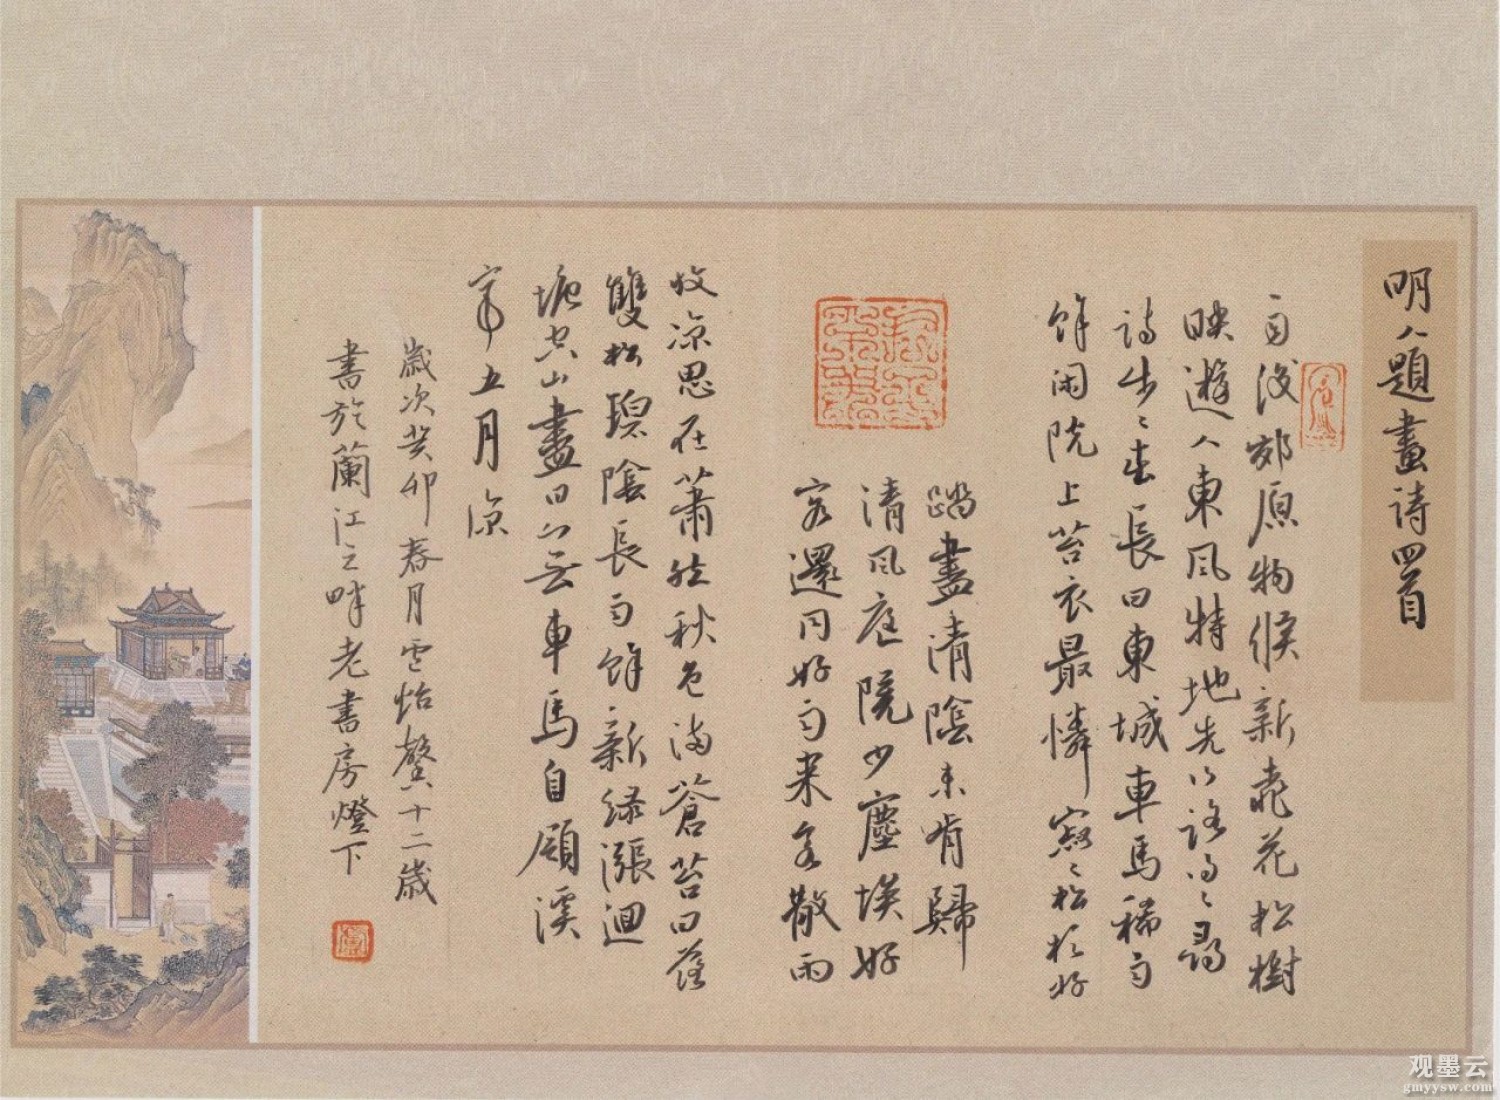 明人題畫詩四首
雨後郊原物候新桃花松樹
映遊人東風特地先得々尋
詩步々春長日東城車馬稀雨
餘閑院上苔衣最憐寂々松杉好
踏盡清陰未肯歸
清風庭院少塵埃好
客還同好雨來客散雨
收涼思在蕭然秋色滿蒼苔日落
雙松碧陰長雨餘新綠漲迴
塘空山盡日無車馬自領溪
亭五月涼
歲次癸卯春月雲怡馨十二歲
書於蘭江之畔老書房燈下
观墨云
gmyysw.com